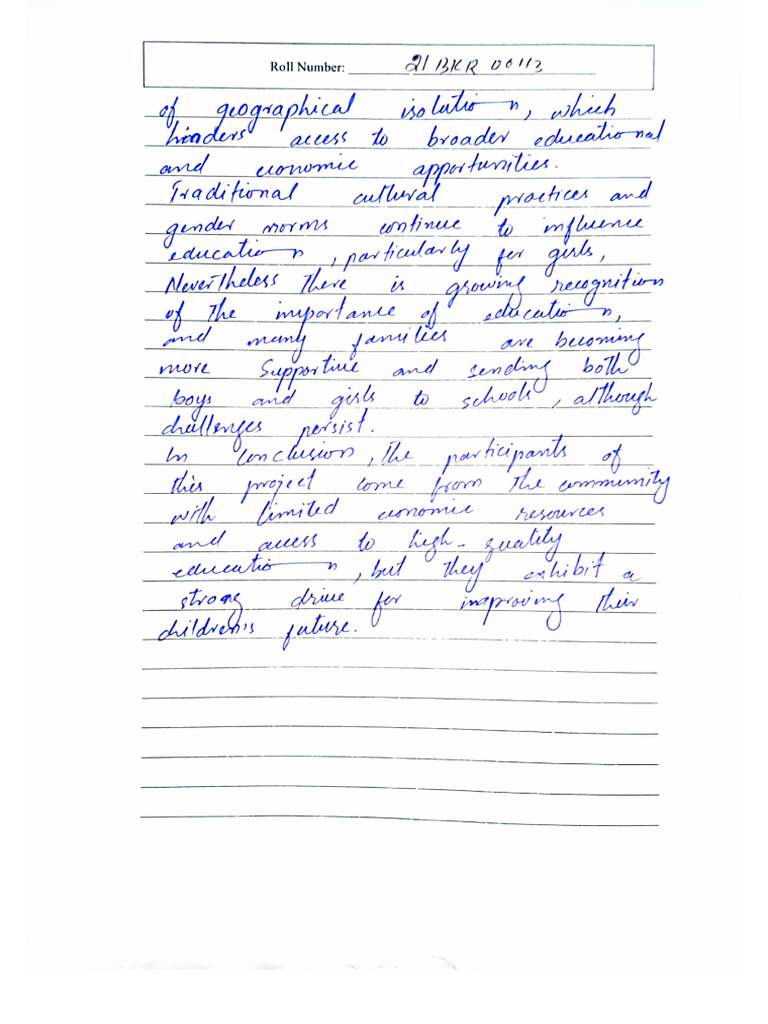 Roll Number: 21BKR00113
of geographical isolation, which
hinders access to broader educational
and economic apportunities.
Traditional cultural practices and
gender norms continue to influence
education, particularly for girls,
Nevertheless there is growing recognition
of the importance of education,
and many families are becoming
more Supportive and sending both
boys and girls to schools, although
challenges persist.
In Conclusion, the participants of
this project come from the community
with limited economic resources
and access to high-quality
education, but they exhibit a
strong drive for improving their
children's future.